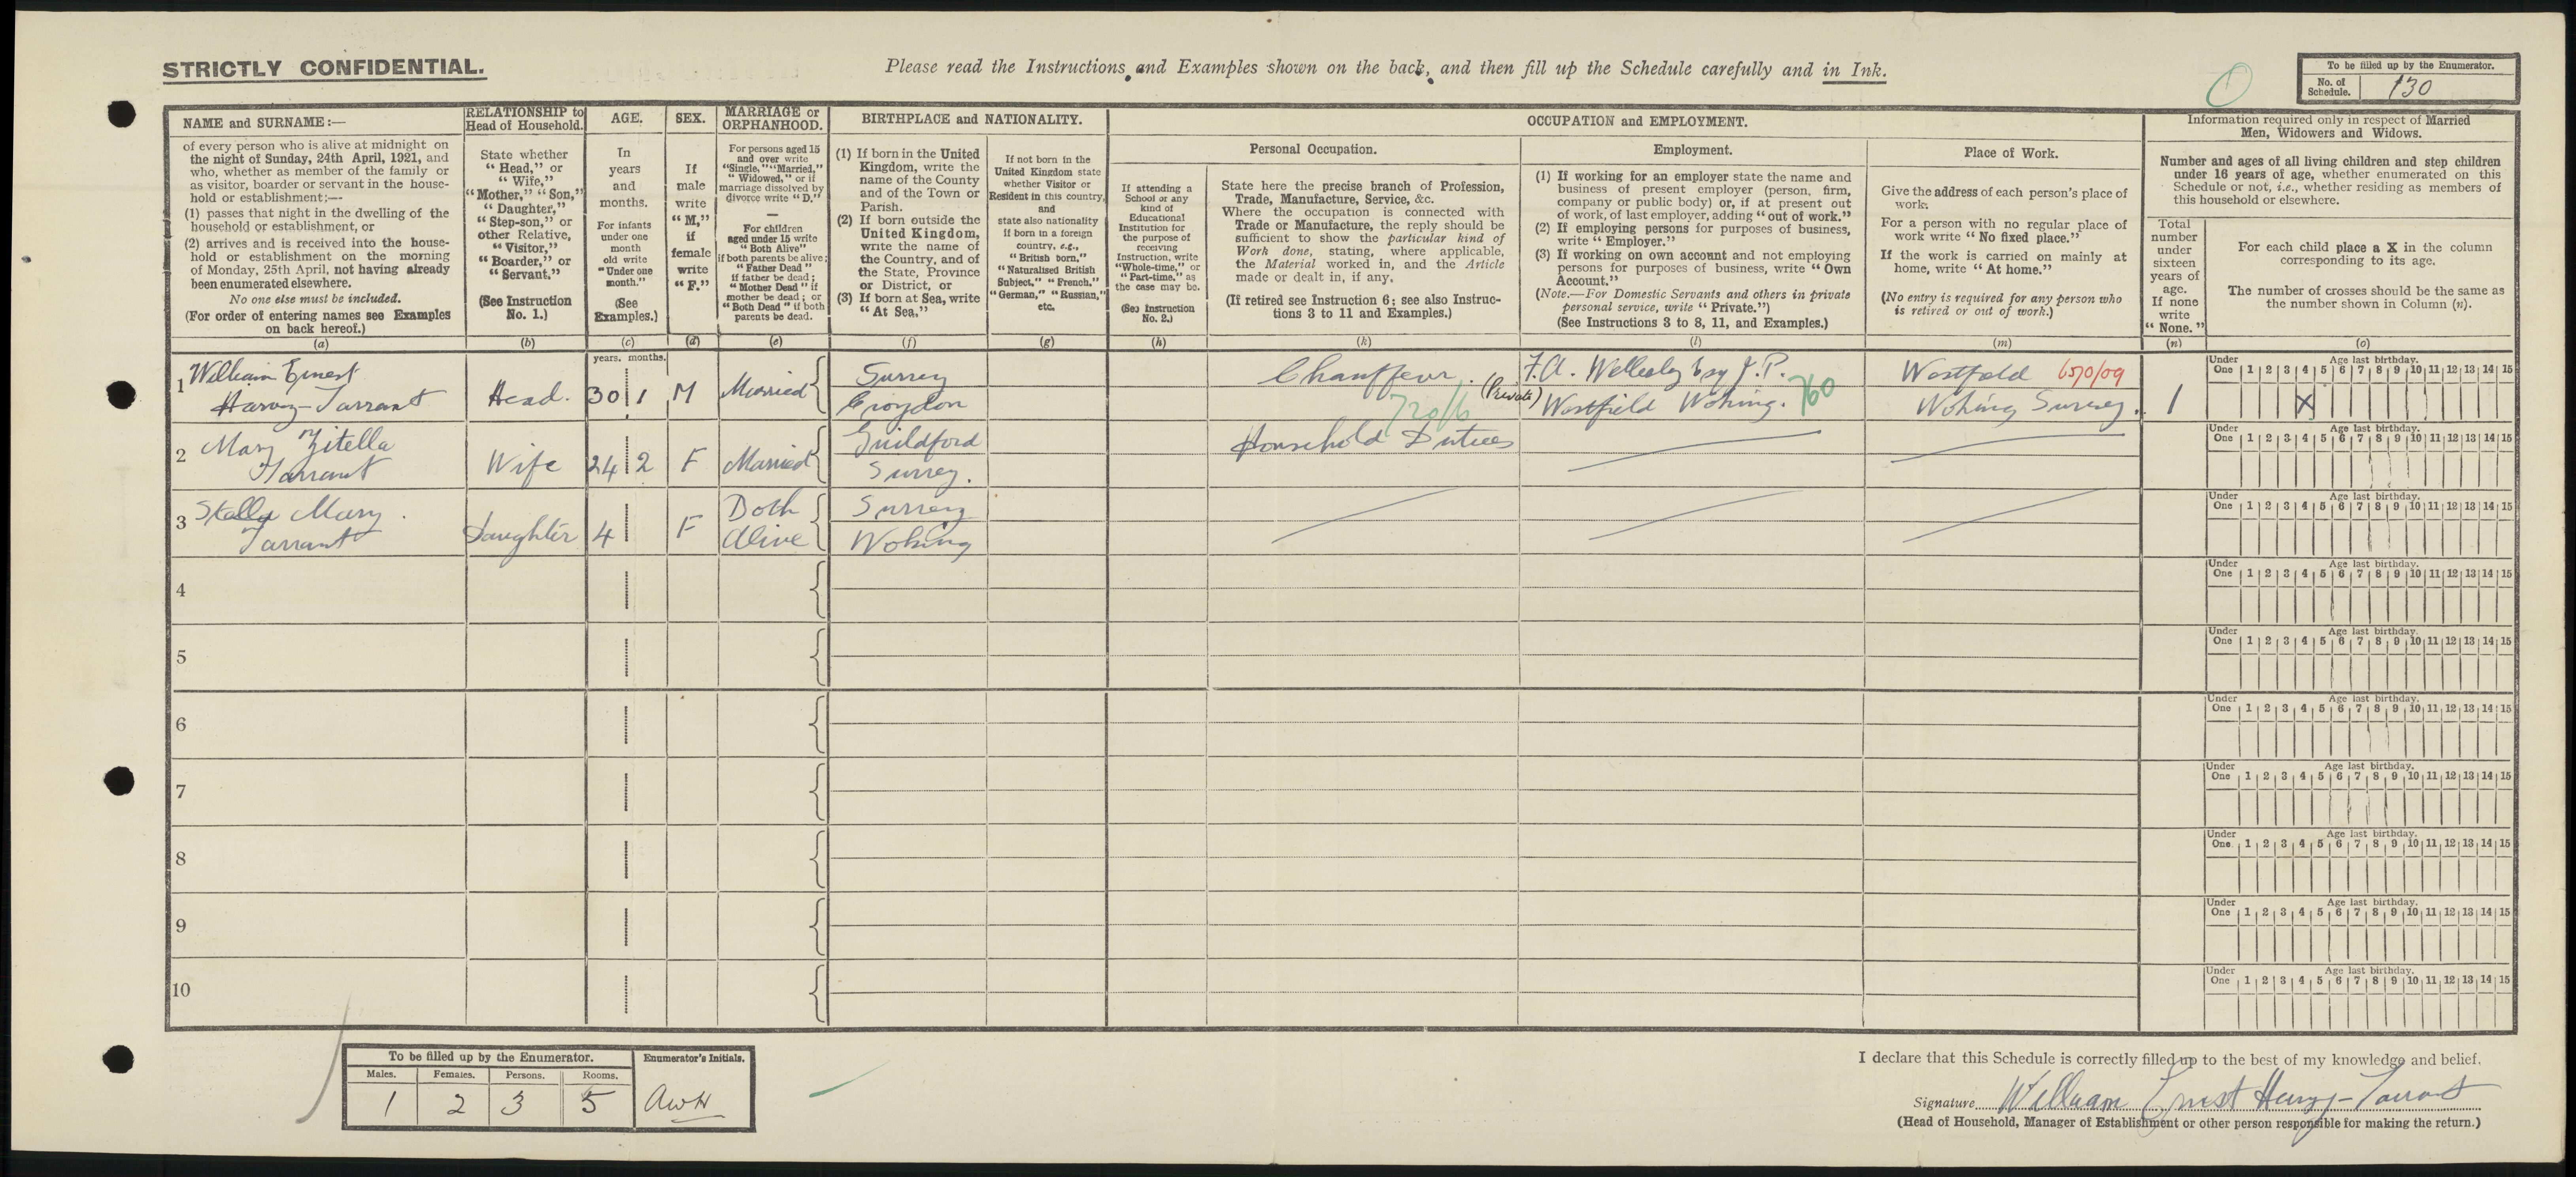 STRICTLY CONFIDENTIAL.
Please read the Instructions and Examples shown on the back, and then fill up the Schedule carefully and in Ink.
To be filled up by the Enumerator.
No. of Schedule. 130
NAME and SURNAME:—
of every person who is alive at midnight on
the night of Sunday, 24th April, 1921, and
who, whether as member of the family or
as visitor, boarder or servant in the house-
hold or establishment;—
(1) passes that night in the dwelling of the
household or establishment, or
(2) arrives and is received into the house-
hold or establishment on the morning
of Monday, 25th April, not having already
been enumerated elsewhere.
No one else must be included.
(For order of entering names see Examples
on back hereof.)
(a)
RELATIONSHIP to
Head of Household.
State whether
"Head," or
"Wife,"
"Mother," "Son,"
"Daughter,"
"Step-son," or
other Relative,
"Visitor,"
"Boarder," or
"Servant."
(See Instruction
No. 1.)
(b)
AGE.
In
years
and
months.
For infants
under one
month
old write
"Under one
month."
(See
Examples.)
(c)
SEX.
If
male
write
"M,"
if
female
write
"F."
(d)
MARRIAGE or
ORPHANHOOD.
For persons aged 15
and over write
"Single," "Married,"
"Widowed," or if
marriage dissolved by
divorce write "D."
—
For children
aged under 15 write
"Both Alive"
if both parents be alive;
"Father Dead"
if father be dead;
"Mother Dead" if
mother be dead; or
"Both Dead" if both
parents be dead.
(e)
BIRTHPLACE and NATIONALITY.
(1) If born in the United
Kingdom, write the
name of the County
and of the Town or
Parish.
(2) If born outside the
United Kingdom,
write the name of
the Country, and of
the State, Province
or District, or
(3) If born at Sea, write
"At Sea."
(f)
If not born in the
United Kingdom state
whether Visitor or
Resident in this country,
and
state also nationality
if born in a foreign
country, e.g.,
"British born,"
"Naturalised British
Subject," "French,"
"German," "Russian,"
etc.
(g)
OCCUPATION and EMPLOYMENT.
If attending a
School or any
kind of
Educational
Institution for
the purpose of
receiving
Instruction, write
"Whole-time," or
"Part-time," as
the case may be.
(See Instruction
No. 2.)
(h)
Personal Occupation.
State here the precise branch of Profession,
Trade, Manufacture, Service, &c.
Where the occupation is connected with
Trade or Manufacture, the reply should be
sufficient to show the particular kind of
Work done, stating, where applicable,
the Material worked in, and the Article
made or dealt in, if any.
(If retired see Instruction 6; see also Instruc-
tions 3 to 11 and Examples.)
(k)
Employment.
(1) If working for an employer state the name and
business of present employer (person, firm,
company or public body) or, if at present out
of work, of last employer, adding "out of work."
(2) If employing persons for purposes of business,
write "Employer."
(3) If working on own account and not employing
persons for purposes of business, write "Own
Account."
(Note.—For Domestic Servants and others in private
personal service, write "Private.")
(See Instructions 3 to 8, 11, and Examples.)
(l)
Place of Work.
Give the address of each person's place of
work.
For a person with no regular place of
work write "No fixed place."
If the work is carried on mainly at
home, write "At home."
(No entry is required for any person who
is retired or out of work.)
(m)
Information required only in respect of Married
Men, Widowers and Widows.
Number and ages of all living children and step children
under 16 years of age, whether enumerated on this
Schedule or not, i.e., whether residing as members of
this household or elsewhere.
Total
number
under
sixteen
years of
age.
If none
write
"None."
(n)
For each child place a X in the column
corresponding to its age.
The number of crosses should be the same as
the number shown in Column (n).
(o)
years. months.
1 William Ernest
Harvey-Tarrant
Head. 30 1 M Married
Surrey
Croydon
Chauffeur. (Private)
720/6
F.A. Wellesley Esq J.P.
Westfield Woking. 760
Westfield 650/09
Woking Surrey.
1
Under One 1 2 3 4 5 6 7 8 9 10 11 12 13 14 15
Age last birthday.
X
2 Mary Zitella
Tarrant
Wife 24 2 F Married
Guildford
Surrey.
Household Duties
Under One 1 2 3 4 5 6 7 8 9 10 11 12 13 14 15
Age last birthday.
3 Stella Mary.
Tarrant
Daughter 4 F Both
Alive
Surrey
Woking
Under One 1 2 3 4 5 6 7 8 9 10 11 12 13 14 15
Age last birthday.
4
Under One 1 2 3 4 5 6 7 8 9 10 11 12 13 14 15
Age last birthday.
5
Under One 1 2 3 4 5 6 7 8 9 10 11 12 13 14 15
Age last birthday.
6
Under One 1 2 3 4 5 6 7 8 9 10 11 12 13 14 15
Age last birthday.
7
Under One 1 2 3 4 5 6 7 8 9 10 11 12 13 14 15
Age last birthday.
8
Under One 1 2 3 4 5 6 7 8 9 10 11 12 13 14 15
Age last birthday.
9
Under One 1 2 3 4 5 6 7 8 9 10 11 12 13 14 15
Age last birthday.
10
Under One 1 2 3 4 5 6 7 8 9 10 11 12 13 14 15
Age last birthday.
To be filled up by the Enumerator.
Enumerator's Initials.
Males. Females. Persons. Rooms.
1 2 3 5 AWH
I declare that this Schedule is correctly filled up to the best of my knowledge and belief.
Signature William Ernest Harvey-Tarrant
(Head of Household, Manager of Establishment or other person responsible for making the return.)